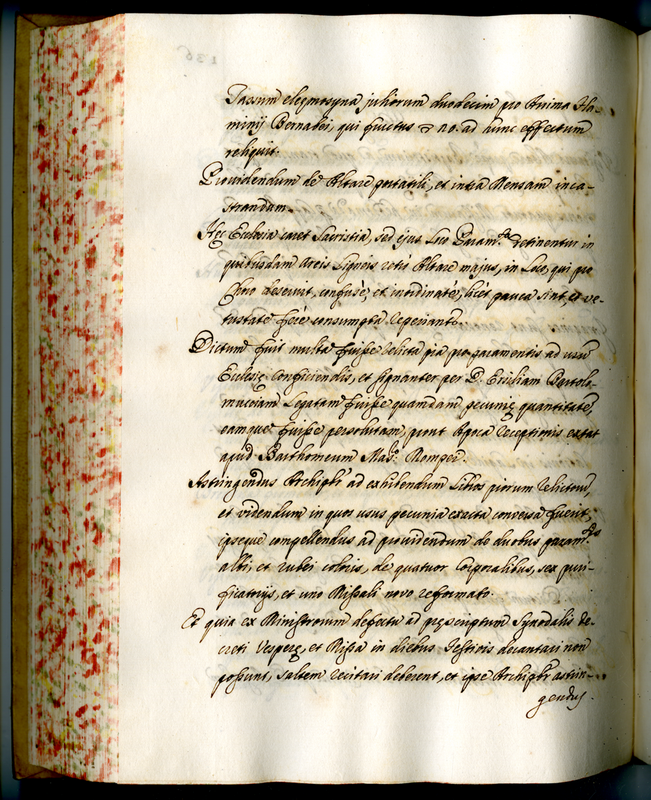 Passum elęmosyna juliorum duodecim pro Anima Fla-
minij Bernabei, qui fructus 20. ad hunc effectum
reliquit.
Providendum de Altare portatili, et intra Mensam inca-
strandum.
Hęc Ecclesia caret Sacristia, sed ejus loco Param.ta detinentur in
quibusdam Arcis ligneis retrò Altare majus, in loco, qui pro
Choro deservit, confusè, et inordinatè, licèt pauca sint, et ve-
tustate ferè consumpta reperiantr.
Dictum fuit multa fuisse relicta pia pro paramentis ad usum
Ecclesię conficiendis, et signanter per D. Ersiliam Bartolo-
mucciam legatam fuisse quamdam pecunię quantitatem,
eamque fuisse persolutam, prout Apoca receptionis extat
apud Barthomeum Mag. Rampei.
Astringendus Archipbr ad exhibendum libros piorum relictorum,
et videndum in quos usus pecunia exacta conversa fuerit,
ipseque compellendus ad providendum de duobus param.tis
albi, et rubei coloris, de quatuor Corporalibus, sex puri-
ficatorijs, et uno Missali novo reformato.
Et quia ex Ministrorum defectu ad pręscriptum Synodalis de-
creti Vesperę, et Missa in diebus Festivis decantari non
possunt, saltem recitari deberent, et ipse Archipbr astrin-
gendus